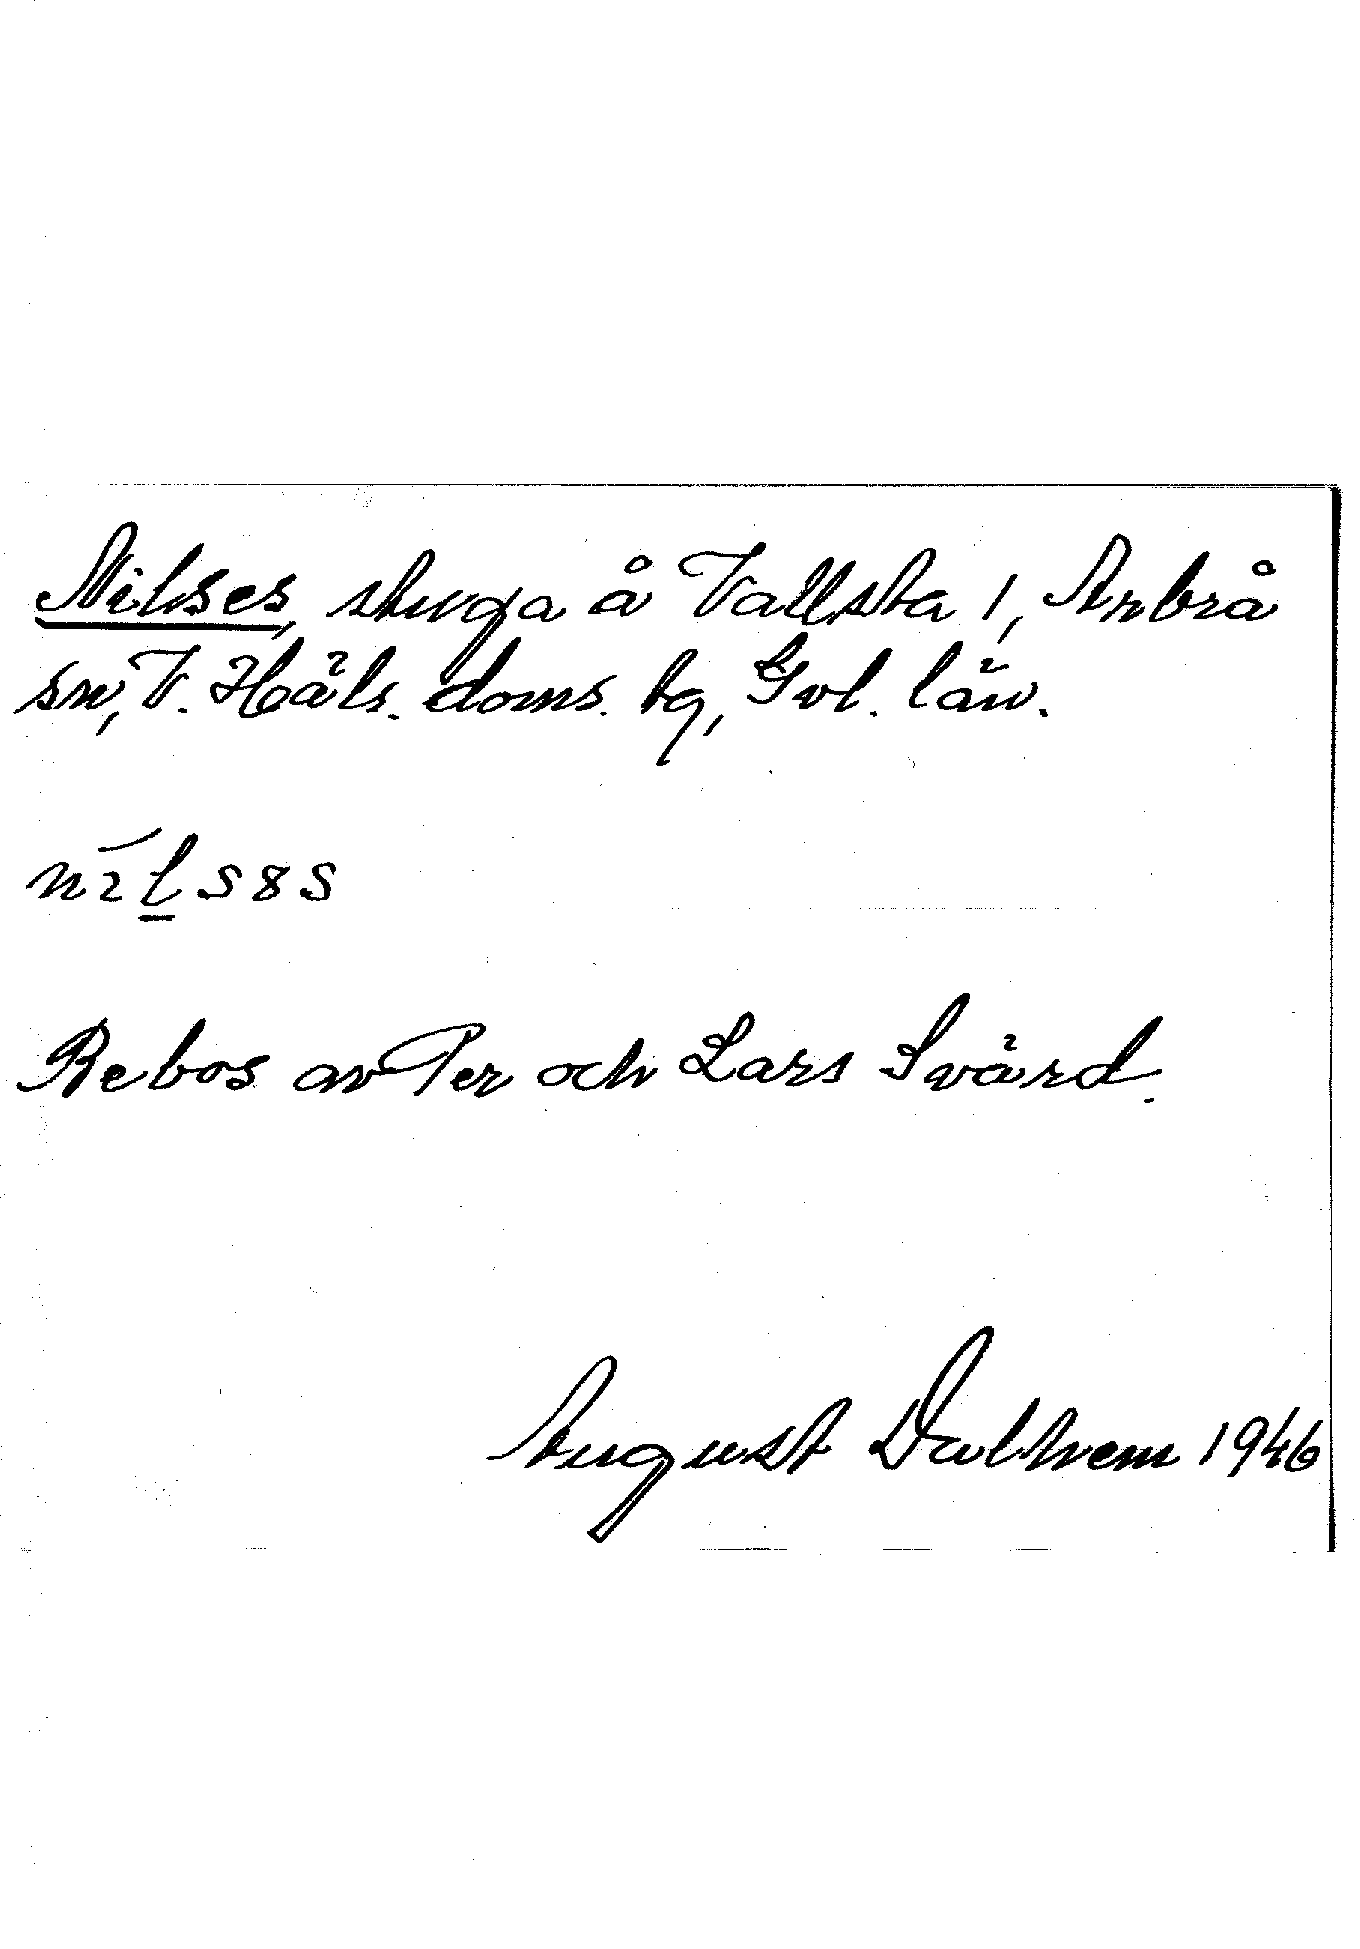 Nilses, stuga å Vallsta 1, Arbrå
sn, V. Häls. doms. tg, Gvl. län.
nīl̲s8s
Bebos av Per och Lars Svärd.
August Dalhem 1946